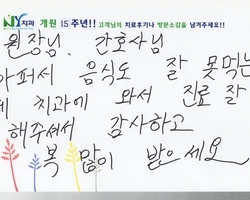 NY치과 개원 15주년!! 고객님의 치료후기나 방문소감을 남겨주세요!!
원장님, 간호사님
아퍼서 음식도 잘 못먹는
데 치과에 와서 진료 잘
해주셔서 감사하고
복 많이 받으세요